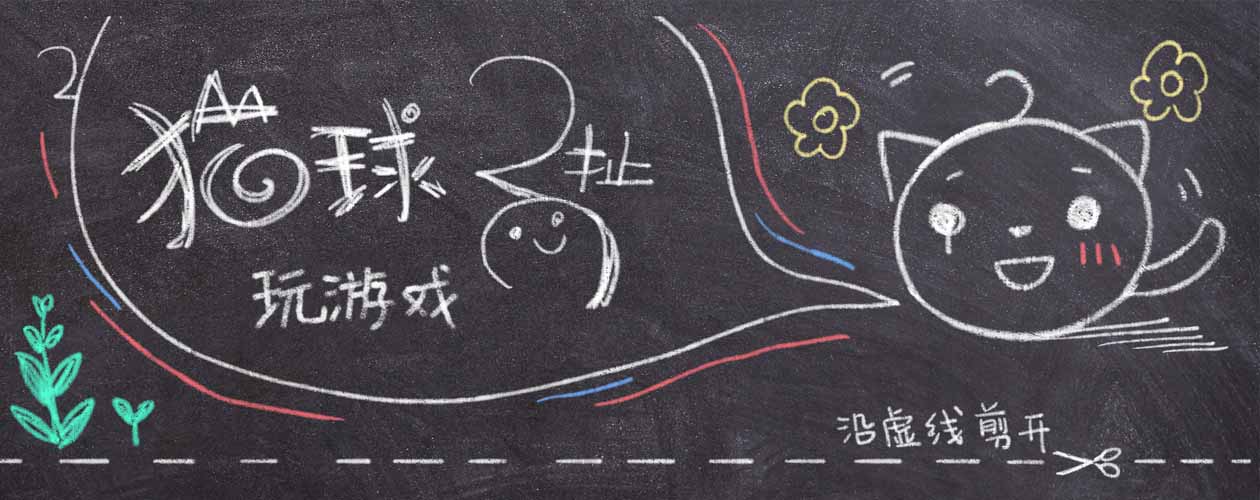 猫球
玩游戏
沿虚线剪开